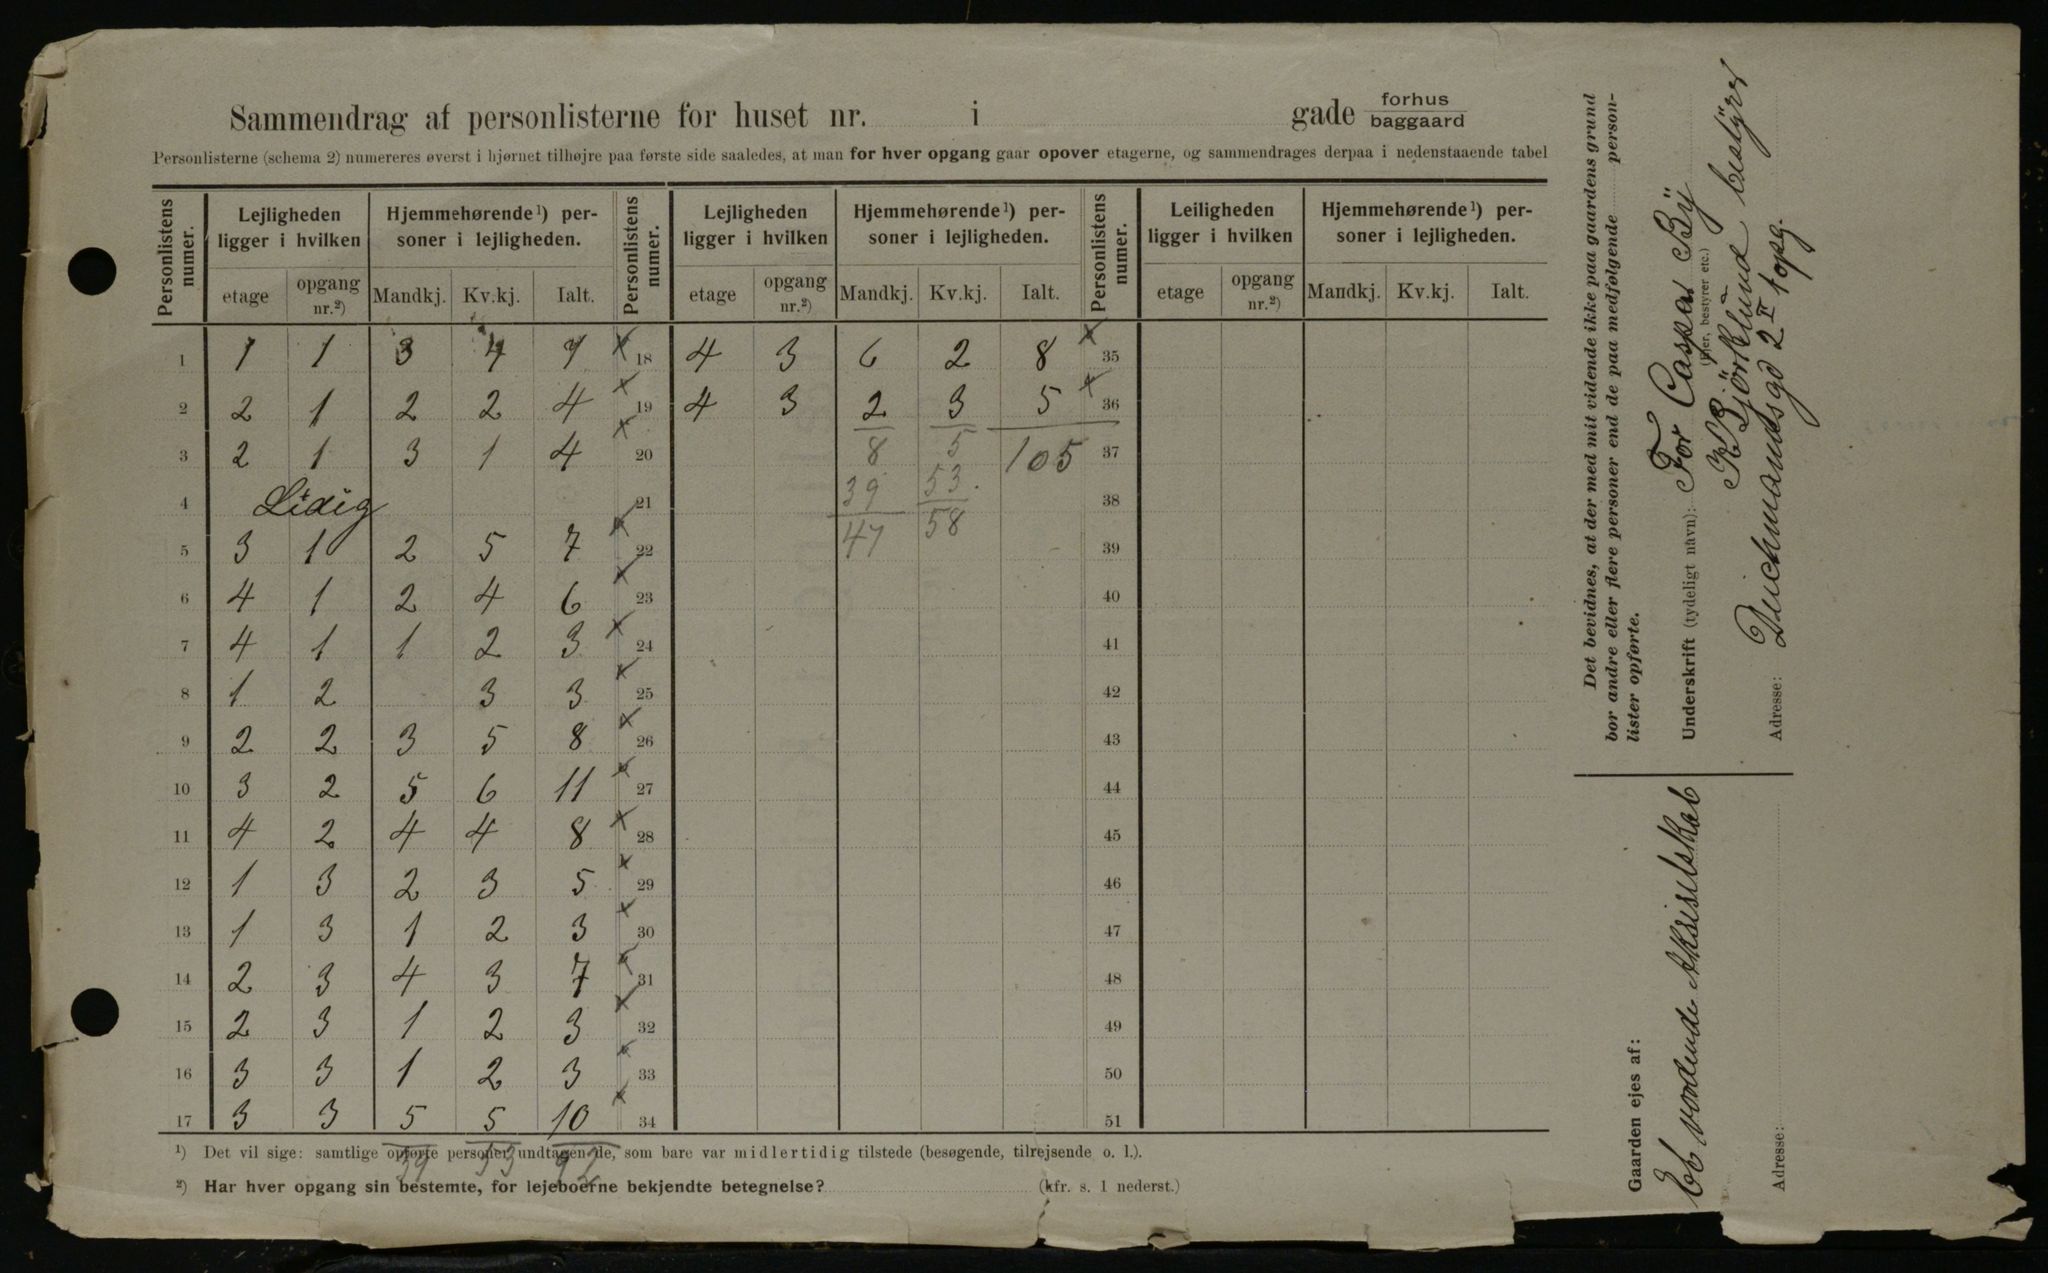 Sammendrag af personlisterne for huset nr. i gade forhus baggaard
Personlisterne (schema 2) numereres øverst i hjørnet tilhøjre paa første side saaledes, at man for hver opgang gaar opover etagerne, og sammendrages derpaa i nedenstaaende tabel
Personlistens numer. Lejligheden ligger i hvilken Hjemmehørende¹) personer i lejligheden. Personlistens numer. Lejligheden ligger i hvilken Hjemmehørende¹) personer i lejligheden. Personlistens numer. Leiligheden ligger i hvilken Hjemmehørende¹) personer i lejligheden.
etage opgang nr.²) Mandkj. Kv.kj. Ialt. etage opgang nr.²) Mandkj. Kv.kj. Ialt. etage opgang nr.²) Mandkj. Kv.kj. Ialt.
1 1 1 3 4 7 x 18 4 3 6 2 8 x 35
2 2 1 2 2 4 x 19 4 3 2 3 5 x 36
3 2 1 3 1 4 x 20 8 5 105 37
4 Lidig 21 39 53. 38
5 3 1 2 5 7 x 22 47 58 39
6 4 1 2 4 6 x 23 40
7 4 1 1 2 3 x 24 41
8 1 2 3 3 x 25 42
9 2 2 3 5 8 x 26 43
10 3 2 5 6 11 x 27 44
11 4 2 4 4 8 x 28 45
12 1 3 2 3 5 x 29 46
13 1 3 1 2 3 x 30 47
14 2 3 4 3 7 x 31 48
15 2 3 1 2 3 x 32 49
16 3 3 1 2 3 x 33 50
17 3 3 5 5 10 x 34 51
39 53 92
¹) Det vil sige: samtlige opførte personer undtagen de, som bare var midlertidig tilstede (besøgende, tilrejsende o. l.).
²) Har hver opgang sin bestemte, for lejeboerne bekjendte betegnelse? (kfr. s. 1 nederst.)
Det bevidnes, at der med mit vidende ikke paa gaardens grund
bor andre eller flere personer end de paa medfølgende person-
lister opførte.
Underskrift (tydeligt navn): For Caspar Bÿ
(Ejer, bestyrer etc.)
K Björklund bestÿrer
Adresse: Deichmandsgd 2 II 1 opg.
Gaarden ejes af:
Et vordende Aktieselskab
Adresse: